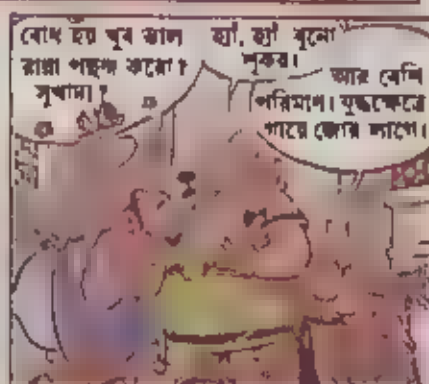 বোধ হয় খুব ভাল
রান্না পছন্দ করো?
সুখাদ্য?
হ্যাঁ, হ্যাঁ বুনো
শূকর।
আর বেশি
পরিমাণে। যুদ্ধক্ষেত্রে
গায়ে জোর লাগে।